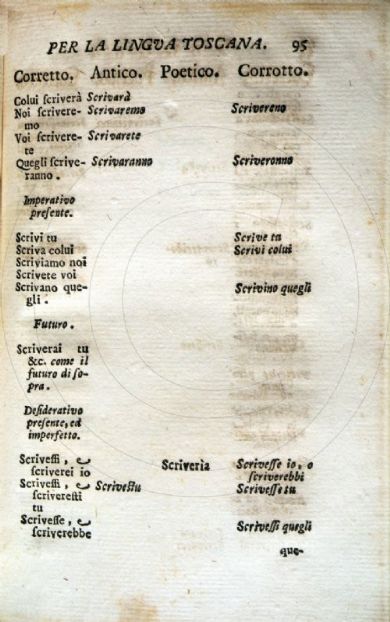 PER LA LINGVA TOSCANA. 95
Corretto. Antico. Poetico. Corrotto.
Colui ſcriverà Scrivarà
Noi ſcrivere- Scrivaremo Scrivereno
mo
Voi ſcrivere- Scrivarete
te
Quegli ſcrive- Scrivaranno Scriveronno
ranno.
Imperativo
preſente.
Scrivi tu Scrive tu
Scriva colui Scrivi colui
Scriviamo noi
Scrivete voi
Scrivano que- Scrivino quegli
gli.
Futuro.
Scriverai tu
&c. come il
futuro di ſo-
pra.
Deſiderativo
preſente, ed
imperfetto.
Scriveſſi, o Scriverìa Scriveſſe io, o
ſcriverei io ſcriverebbi
Scriveſſi, o Scriveſtu Scriveſſe tu
ſcrivereſti
tu
Scriveſſe, o Scriveſſi quegli
ſcriverebbe
que-